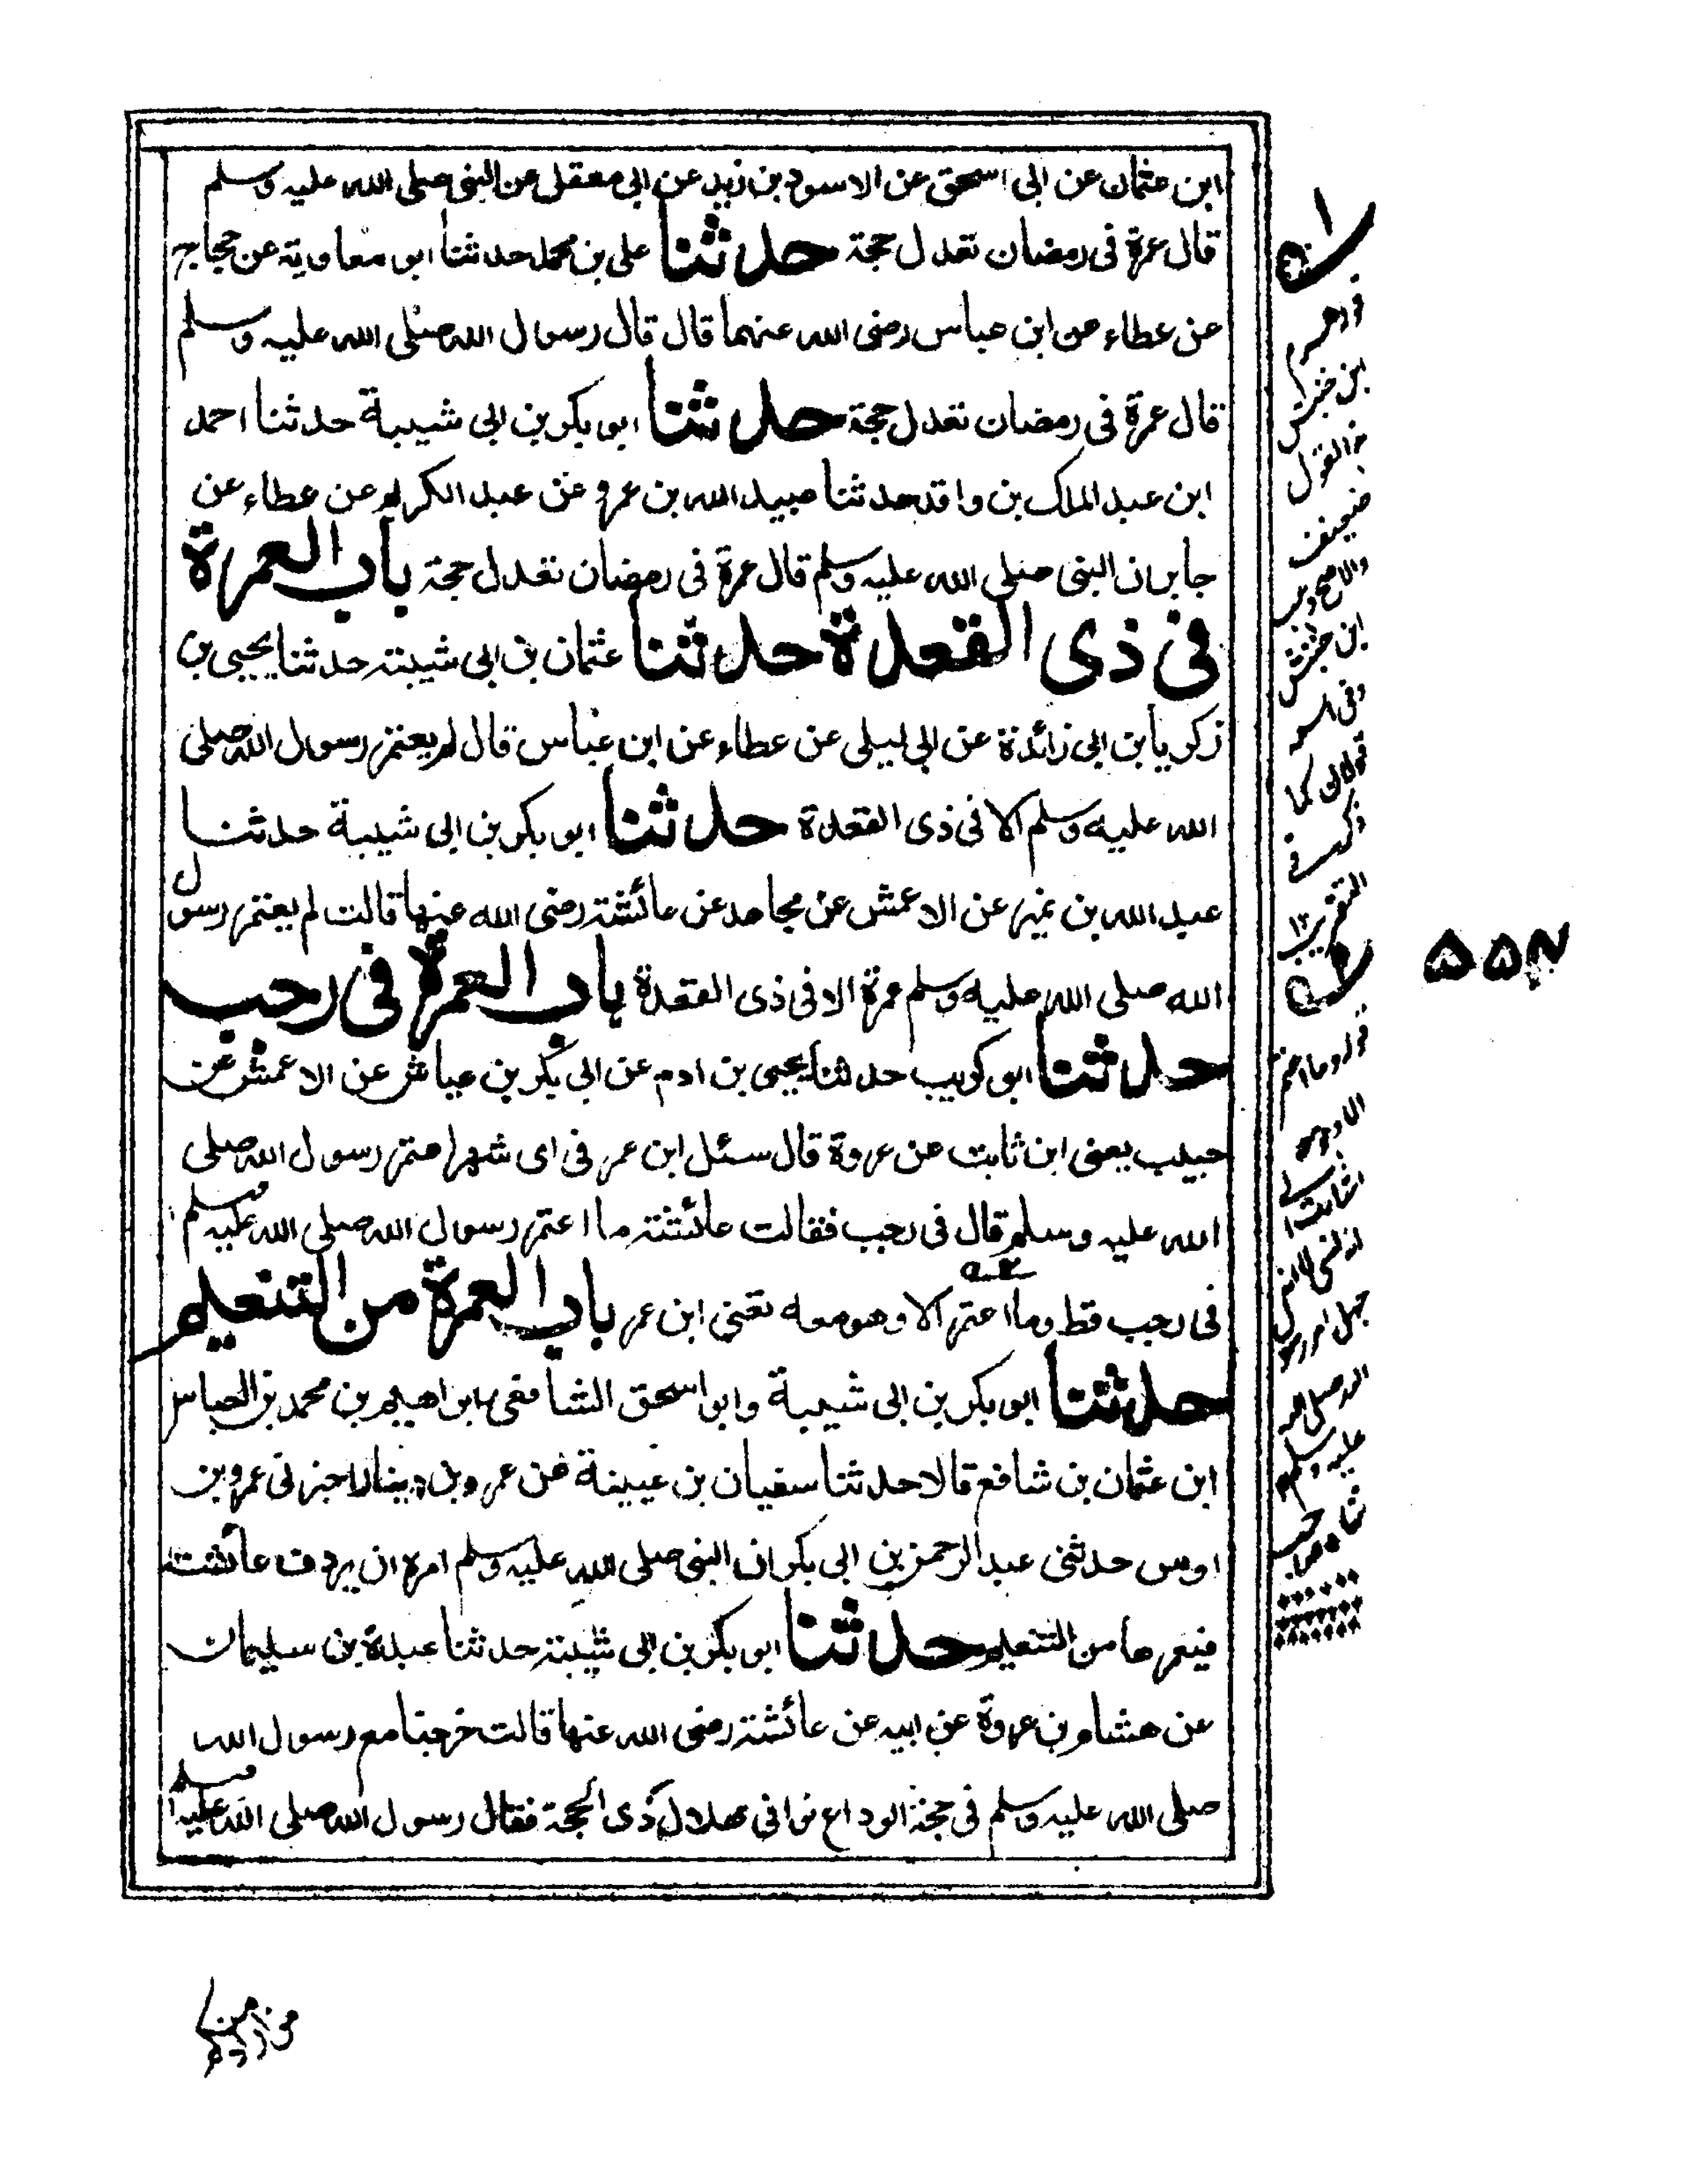 ابن عثمان عن ابى اسحق عن الاسود بن زيد عن ابى معقل عن النبى صلى الله عليه وسلم
قال عمرة فى رمضان تعدل حجة حدثنا على بن محمد حدثنا ابو معاوية عن حجاج
عن عطاء عن ابن عباس رضى الله عنهما قال قال رسول الله صلى الله عليه وسلم
قال عمرة فى رمضان تعدل حجة حدثنا ابو بكر بن ابى شيبة حدثنا احمد
ابن عبد الملك بن واقد حدثنا عبيد الله بن عمرو عن عبد الكريم عن عطاء عن
جابر ان النبى صلى الله عليه وسلم قال عمرة فى رمضان تعدل حجة باب العمرة
فى ذى القعدة حدثنا عثمان بن ابى شيبة حدثنا يحيى بن
زكريا بن ابى زائدة عن ابى ليلى عن عطاء عن ابن عباس قال لم يعتمر رسول الله صلى
الله عليه وسلم الا فى ذى القعدة حدثنا ابو بكر بن ابى شيبة حدثنا
عبد الله بن نمير عن الاعمش عن مجاهد عن عائشة رضى الله عنها قالت لم يعتمر رسول
الله صلى الله عليه وسلم عمرة الا فى ذى القعدة باب العمرة فى رجب
حدثنا ابو كريب حدثنا يحيى بن ادم عن ابى بكر بن عياش عن الاعمش عن
حبيب يعنى ابن ثابت عن عروة قال سئل ابن عمر فى اى شهر اعتمر رسول الله صلى
الله عليه وسلم قال فى رجب فقالت عائشة ما اعتمر رسول الله صلى الله عليه وسلم
فى رجب قط وما اعتمر الا وهو معه تعنى ابن عمر باب العمرة من التنعيم
حدثنا ابو بكر بن ابى شيبة وابو اسحق الشافعى ابراهيم بن محمد بن العباس
ابن عثمان بن شافع قالا حدثنا سفيان بن عيينة عن عمرو بن دينار اخبرنى عمرو بن
اوس حدثنى عبد الرحمن بن ابى بكر ان النبى صلى الله عليه وسلم امره ان يردف عائشة
فيعمرها من التنعيم حدثنا ابو بكر بن ابى شيبة حدثنا عبدة بن سليمان
عن هشام بن عروة عن ابيه عن عائشة رضى الله عنها قالت خرجنا مع رسول الله
صلى الله عليه وسلم فى حجة الوداع نوافى هلال ذى الحجة فقال رسول الله صلى الله عليه وسلم
ابن خنبش
القول
ضعيف
ابن خنبش
كما
فى
التقريب ١٢
الله صلى الله
عليه وسلم
۵۵۴